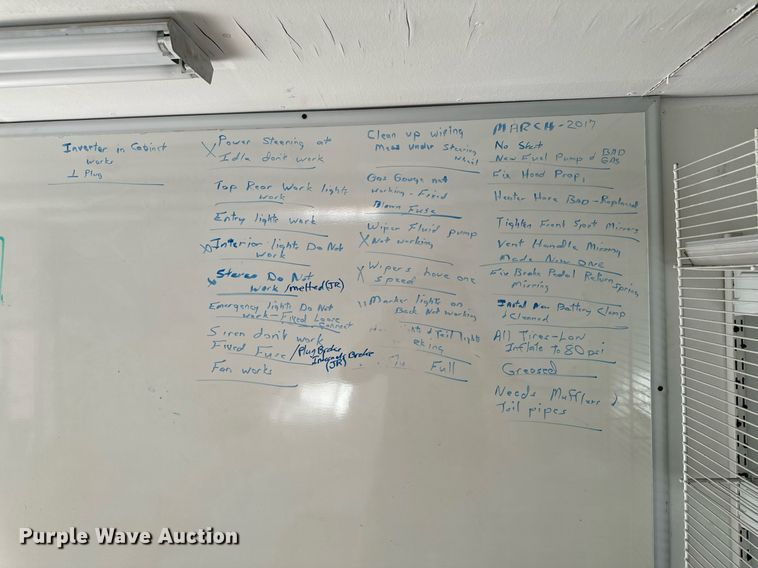 Inverter in Cabinet
works
1 Plug
X Power Steering at
Idle don't work
Top Rear Work lights
work
Entry lights work
X Interior lights Do Not
work
X Stereo Do Not
work /melted (JR)
Emergency lights Do Not
work - Fixed Loose
Connect
Siren don't work
Fixed Fuse / Plug Broke
Internals Broke
(JR)
Fan works
Clean up wiring
Mess under Steering
Gas Gauge not
working - Fixed
Blown Fuse
Wiper Fluid pump
X Not working
X Wipers have one
speed
" Marker lights on
Back Not working
& Tail lights
Full
MARCH - 2017
No Start
New Fuel Pump & BAD
GAS
Fix Hood Prop,
Heater Hose BAD - Replaced
Tighten Front Spot Mirrors
Vent Handle Missing
Made New ONE
Fix Brake Pedal Return Spring
Missing
Install New Battery Clamp
& Cleaned
All Tires - Low
Inflate To 80 psi
Greased
Needs Mufflers &
Tail pipes
Purple Wave Auction